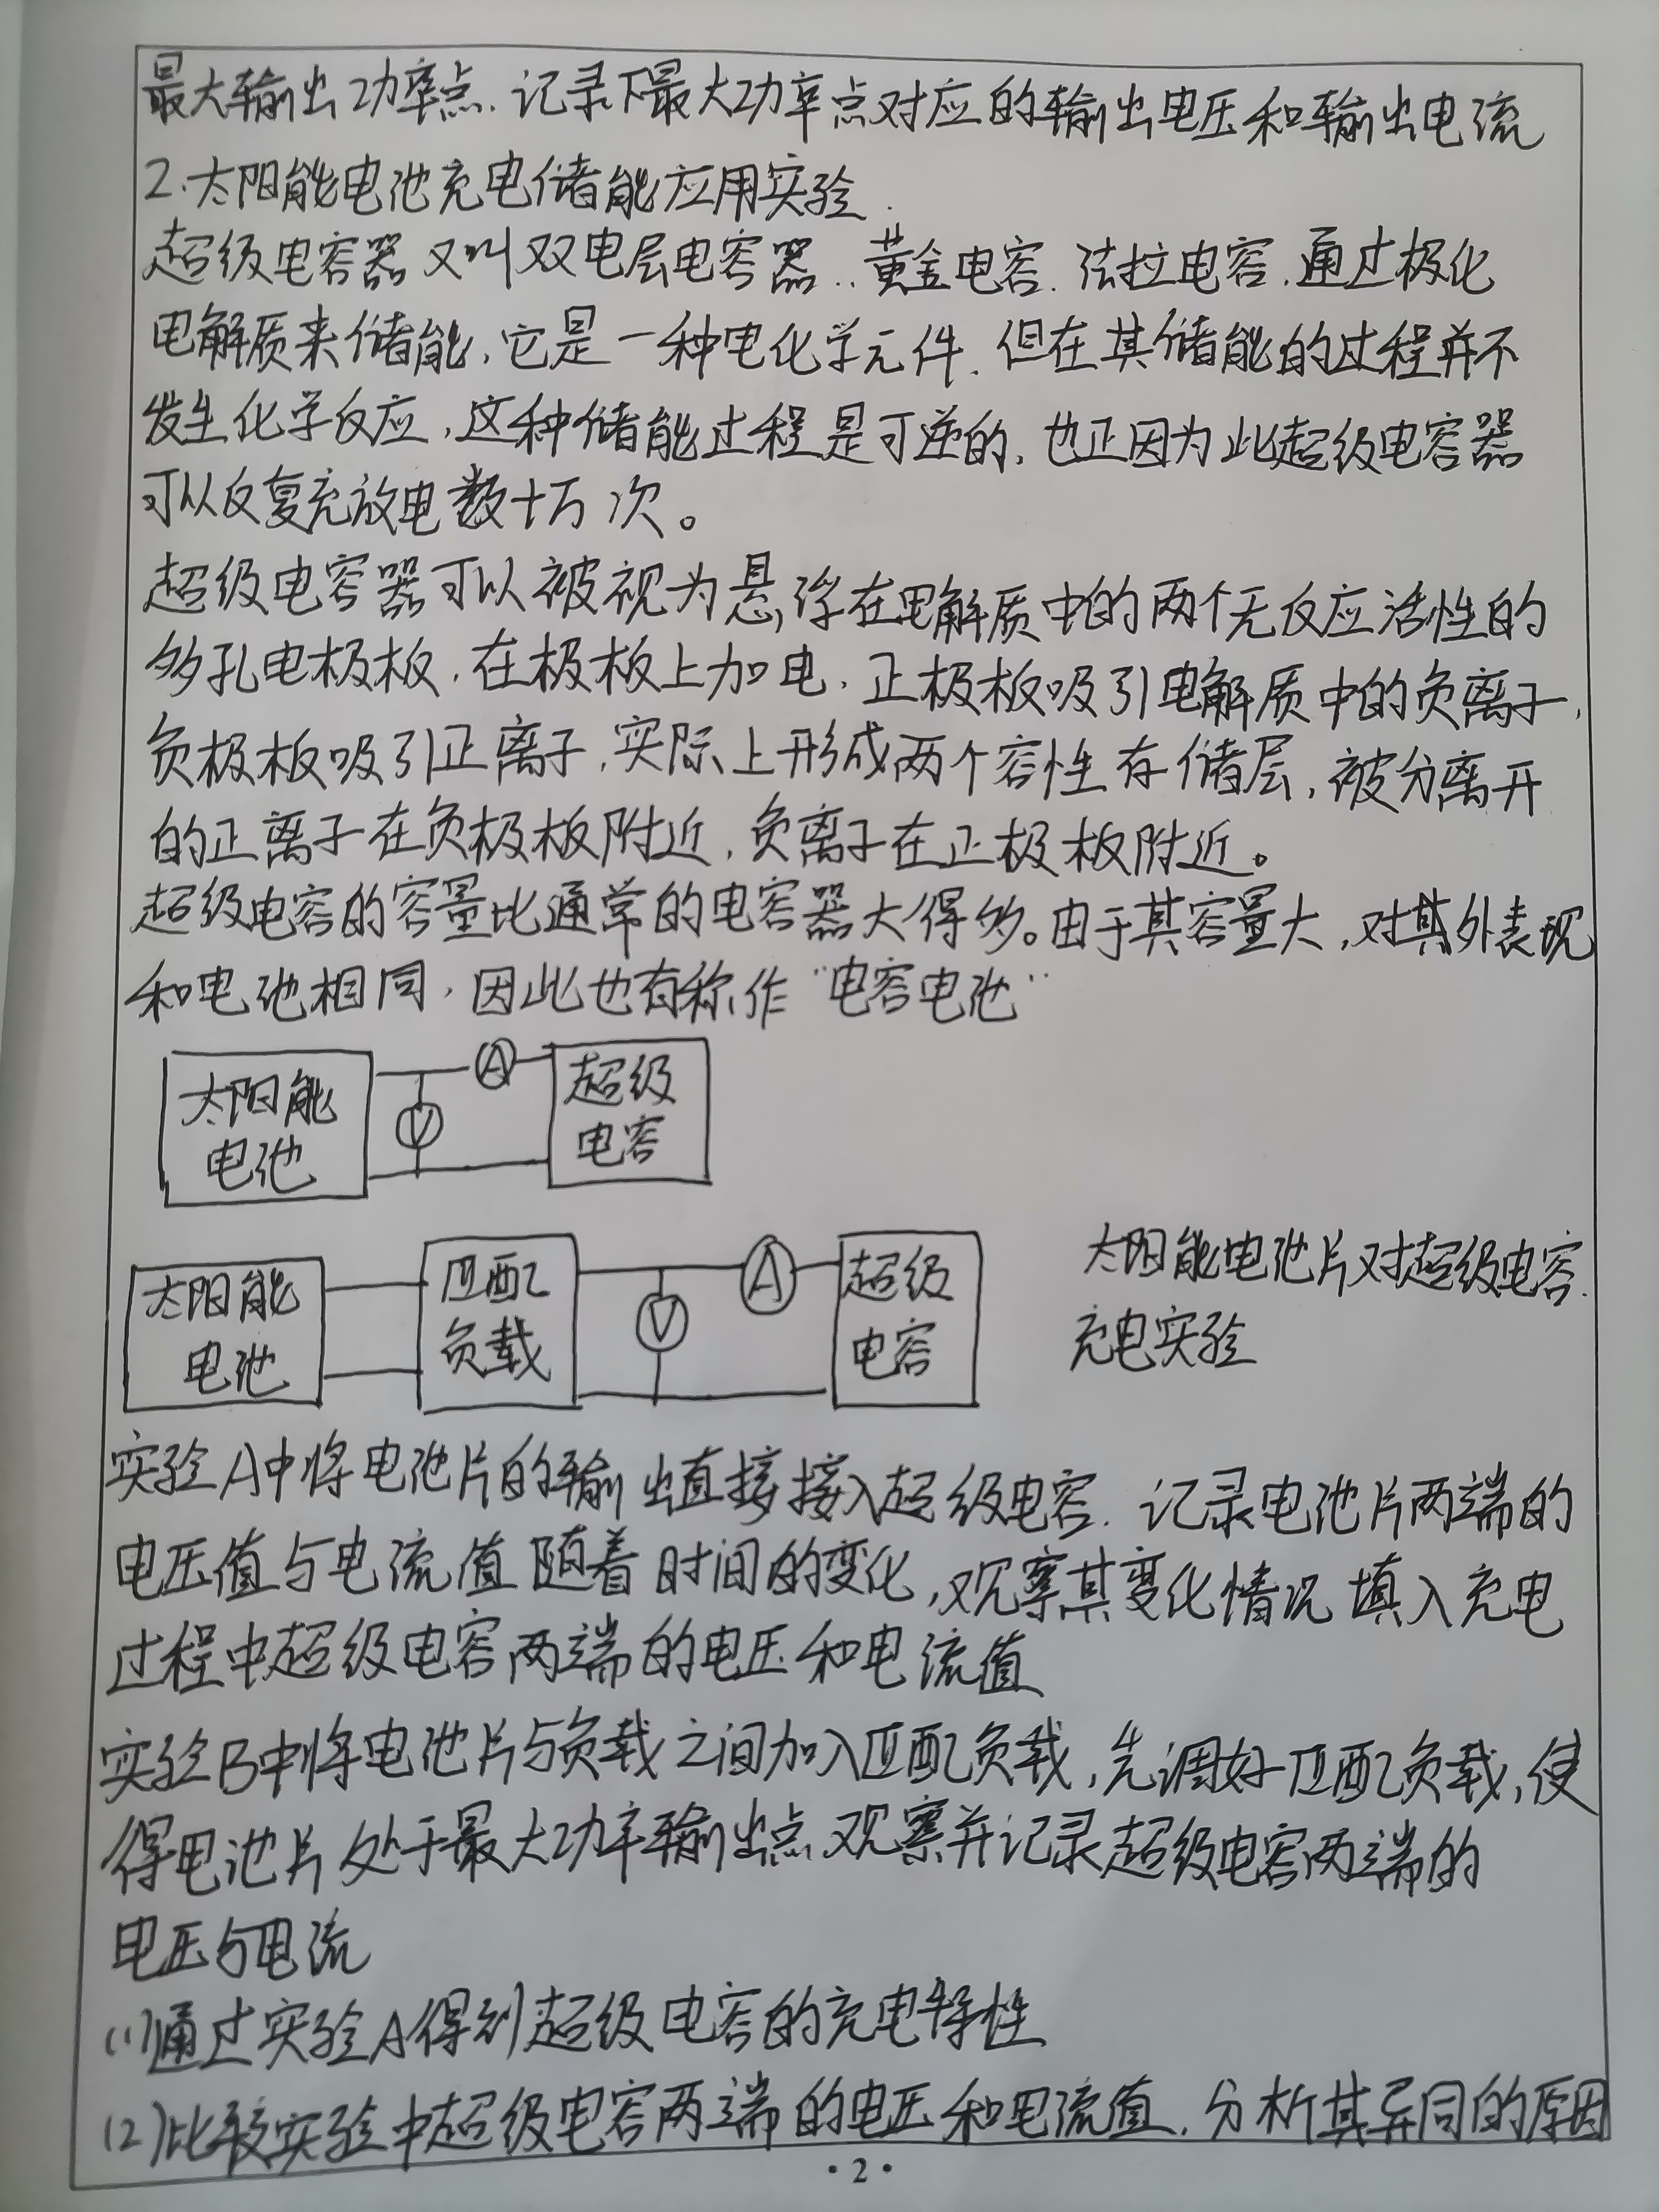 最大输出功率点.记录下最大功率点对应的输出电压和输出电流
2.太阳能电池充电储能应用实验.
超级电容器又叫双电层电容器..黄金电容.法拉电容.通过极化
电解质来储能,它是一种电化学元件.但在其储能的过程并不
发生化学反应,这种储能过程是可逆的,也正因为此超级电容器
可以反复充放电数十万次。
超级电容器可以被视为悬浮在电解质中的两个无反应活性的
多孔电极板.在极板上加电.正极板吸引电解质中的负离子,
负极板吸引正离子.实际上形成两个容性存储层,被分离开
的正离子在负极板附近,负离子在正极板附近。
超级电容的容量比通常的电容器大得多。由于其容量大,对其外表现
和电池相同,因此也有称作“电容电池”
太阳能
电池
V
A
超级
电容
太阳能
电池
匹配
负载
V
A
超级
电容
太阳能电池片对超级电容.
充电实验
实验A中将电池片的输出直接接入超级电容.记录电池片两端的
电压值与电流值随着时间的变化,观察其变化情况填入充电
过程中超级电容两端的电压和电流值
实验B中将电池片与负载之间加入匹配负载,先调好匹配负载,使
得电池片处于最大功率输出点观察并记录超级电容两端的
电压与电流
(1)通过实验A得到超级电容的充电特性
(2)比较实验中超级电容两端的电压和电流值.分析其异同的原因
·2·